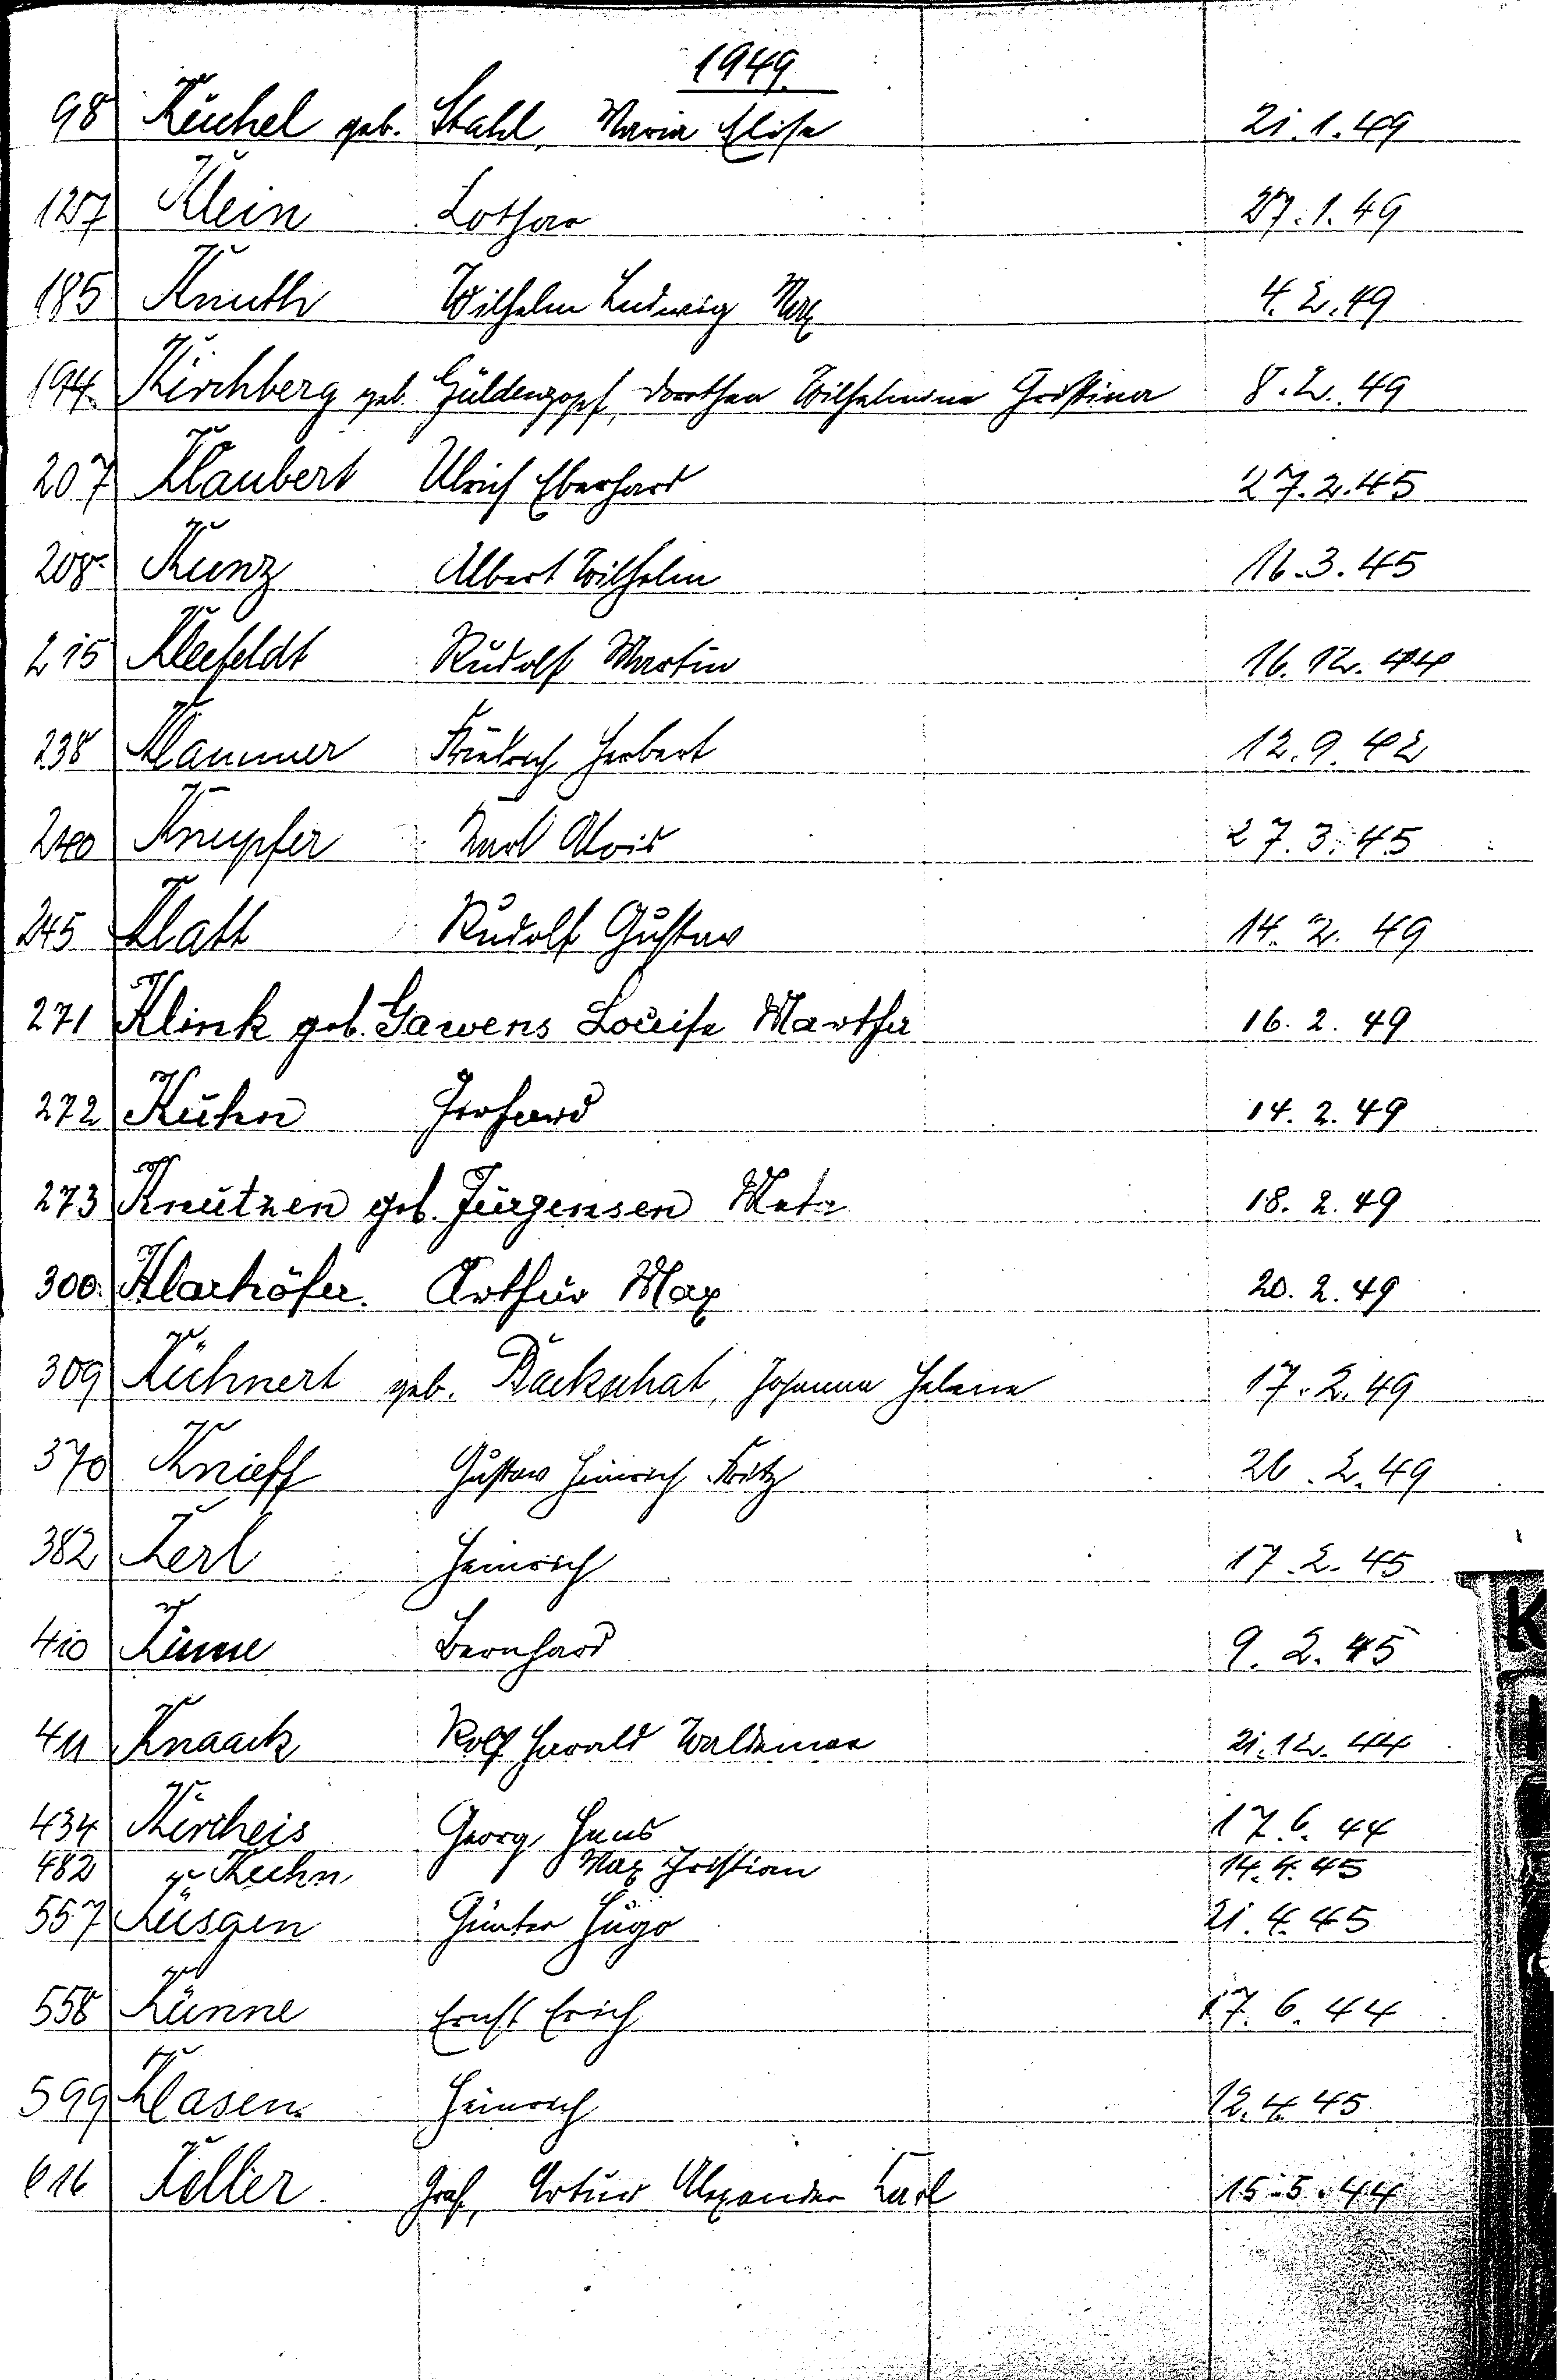 1949.
98 Küchel geb. Stahl, Maria Elise 21.1.49
127 Klein Lothar 27.1.49
185 Knuth Wilhelm Ludwig Max 4.2.49
194. Kirchberg geb. Güldenzopf, Dorothea Wilhelmine Christina 8.2.49
207 Klaubert Ulrich Eberhard 27.2.45
208 Kunz Albert Wilhelm 16.3.45
215 Kleefeldt Rudolf Martin 16.12.44
238 Klammer Friedrich Herbert 12.9.42
240 Knupfer Karl Alois 27.3.45
245 Klatt Rudolf Gustav 14.2.49
271 Klink geb. Gawens Louise Martha 16.2.49
272 Kühn Gerhard 14.2.49
273 Knutzen geb. Jürgensen Meta 18.2.49
300. Klarhöfer. Arthur Max 20.2.49
309 Kühnert geb. Backschat, Johanna Helene 17.2.49
370 Knieff Gustav Heinrich Fritz 26.2.49
382 Kerl Heinrich 17.2.45
410 Kinne Bernhard 9.2.45
411 Knaack Rolf Harald Waldemar 21.12.44
434 Kircheis Georg Hans 17.6.44
482 Kuhn Max Christian 14.4.45
557 Küsgen Günter Hugo 21.4.45
558 Künne Ernst Erich 17.6.44
599 Klasen. Heinrich 12.4.45
616 Keller Graf, Artur Alexander Karl 15.5.44
K